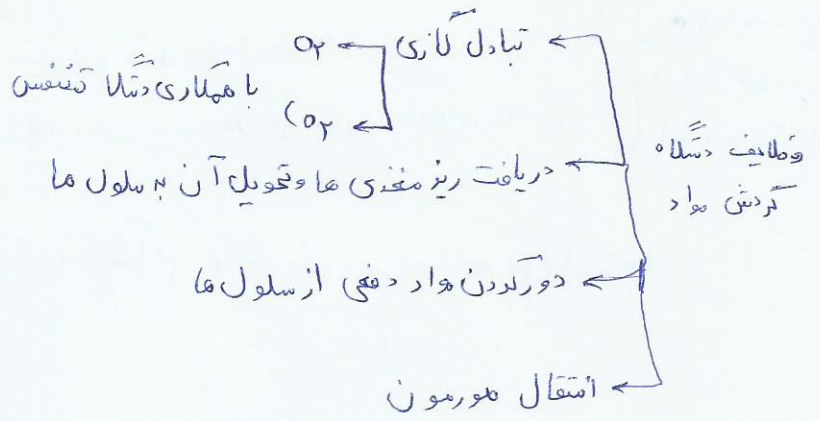 وظایف دستگاه
گردش مواد
تبادل گازی
O₂
CO₂
با همکاری دستگاه تنفس
دریافت ریز مغذی ها و تحویل آن به سلول ها
دور کردن مواد دفعی از سلول ها
انتقال هورمون